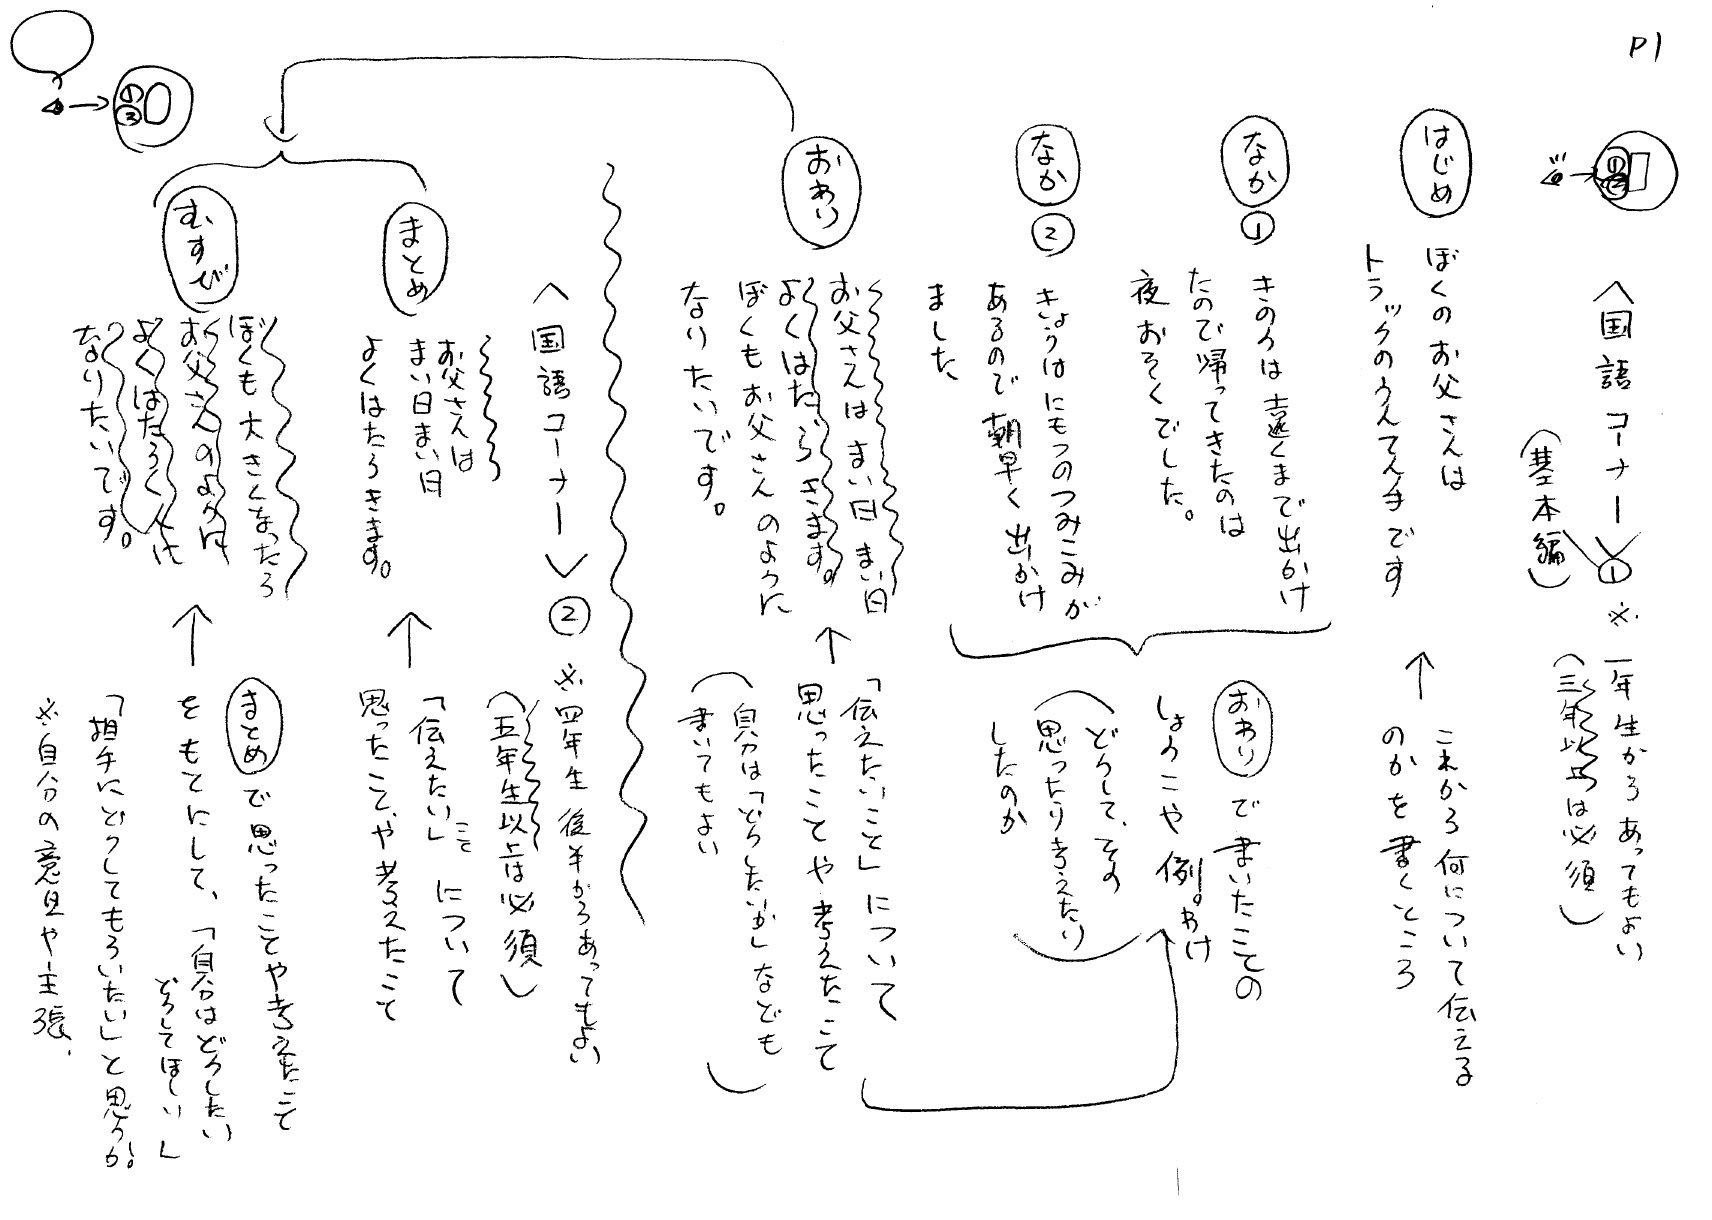 P1
<国語コーナー>① ※一年生からあってもよい
(基本編)
(三年以上は必須)
はじめ
ぼくのお父さんは
トラックのうんてん手です
これから何について伝える
のかを書くところ
なか①
きのうは遠くまで出かけ
たので帰ってきたのは
夜おそくでした。
なか②
きょうはにもつのつみこみが
あるので朝早く出かけ
ました、
おわりで書いたことの
しょうこや例。わけ
(どうして、その
思ったり考えたり
したのか)
おわり
お父さんはまい日まい日
よくはたらきます。
ぼくもお父さんのように
なりたいです。
「伝えたいこと」について
思ったことや考えたこと
(自分は「どうしたいか」なども
書いてもよい)
<国語コーナー>② ※四年生後半からあってもよい
(五年生以上は必須)
まとめ
お父さんは
まい日まい日
よくはたらきます。
「伝えたい」こと について
思ったことや考えたこと
むすび
ぼくも大きくなったら
お父さんのように
よくはたらく人に
なりたいです。
まとめで思ったことや考えたこと
をもとにして、「自分はどうしたい
どうしてほしい」
「相手にどうしてもらいたい」と思うか。
※自分の意見や主張、
①
②